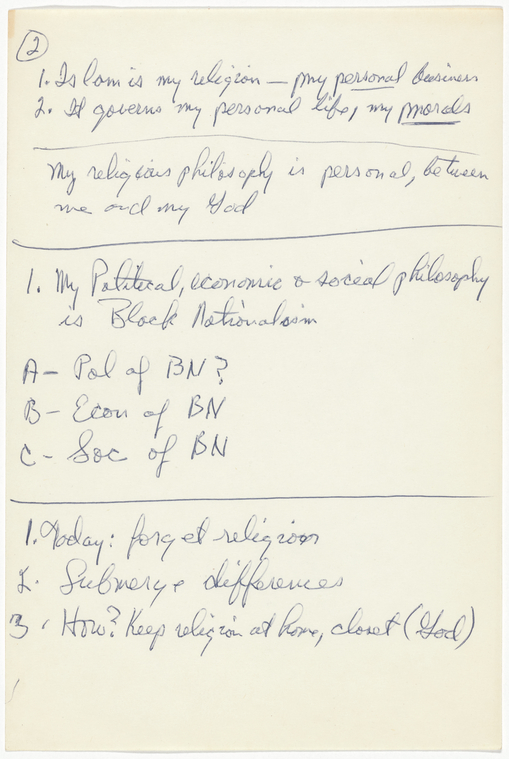 2
1. Islam is my religion — my personal business
2. It governs my personal life, my morals
My religious philosophy is personal, between
me and my God
1. My Political, economic & social philosophy
is Black Nationalism
A- Pol of BN?
B- Econ of BN
C- Soc of BN
1. Today: forget religion
2. Submerge differences
3. How? Keep religion at home, closet (God)